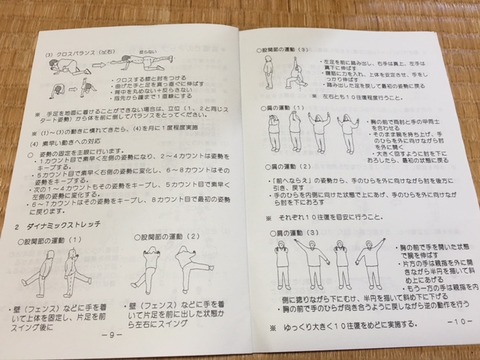 (3) クロスバランス(左右)
反らない
・クロスする膝と肘をつける
・曲げた手と足を真っ直ぐに伸ばす
・背中を丸めない+反らさない
・指先から踵まで1直線にする
※ 手足を地面に着けることができない場合は、立位(1、2と同じス
タート姿勢)から体を前に倒してバランスをとってください。
※ (1)~(3)の動きに慣れてきたら、(4)を月に1度程度実施
(4) 素早い動きへの対応
○ 姿勢の固定を主眼に行います。
・1カウント目で素早く左側の姿勢になり、2~4カウントは姿勢を
キープする。
・5カウント目で素早く右側の姿勢に変化し、6~8カウントはその
姿勢をキープする。
・次の1~4カウントもその姿勢をキープし、5カウント目で素早く
左側の姿勢に変化する。
・6~7カウントはその姿勢をキープし、8カウント目で最初の姿勢
に戻ります。
2 ダイナミックストレッチ
○股関節の運動(1)
○股関節の運動(2)
・壁(フェンス)などに手を着
いて上体を固定し、片足を前
スイング後に
・壁(フェンス)などに手を着
いて、片足を前に出した状態か
ら左右にスイング
-9-
○股関節の運動(3)
・左足を前に踏み出し、右手は真上、左手は
真下に伸ばす
・腰部に力を入れ、上体を安定させ、手をし
っかり伸ばす
・踏み出した足を戻して最初の姿勢に戻る
※ 左右とも10往復程度行うこと。
○肩の運動(1)
・胸の前で両肘と手の甲同士
を合わせる
・そのまま腕を持ち上げ、手
のひらを外に向けながら肘
を外に開く
・大きく回すように肘を下に
おろしたら、最初の状態に戻る
○肩の運動(2)
・「前へならえ」の姿勢から、手のひらを外に向けながら肘を後方に
引き、戻す
・手のひらを内側に向けた状態で上にあげ、手のひらを外に向けなが
ら肘を下におろす
※ それぞれ10往復を目安に行うこと。
○肩の運動(3)
・胸の前で手を開いた状態
で腕を伸ばす
・片方の手は親指を外に開
きながら半円を描いて斜
め上にあげる
・もう一方の手は親指を内
側に捻りながら下にむけ、半円を描いて斜め下に下げる
・胸の前で手のひらが向き合うように戻しながら逆の動作を行う
※ ゆっくり大きく10往復をめどに実施する。
-10-